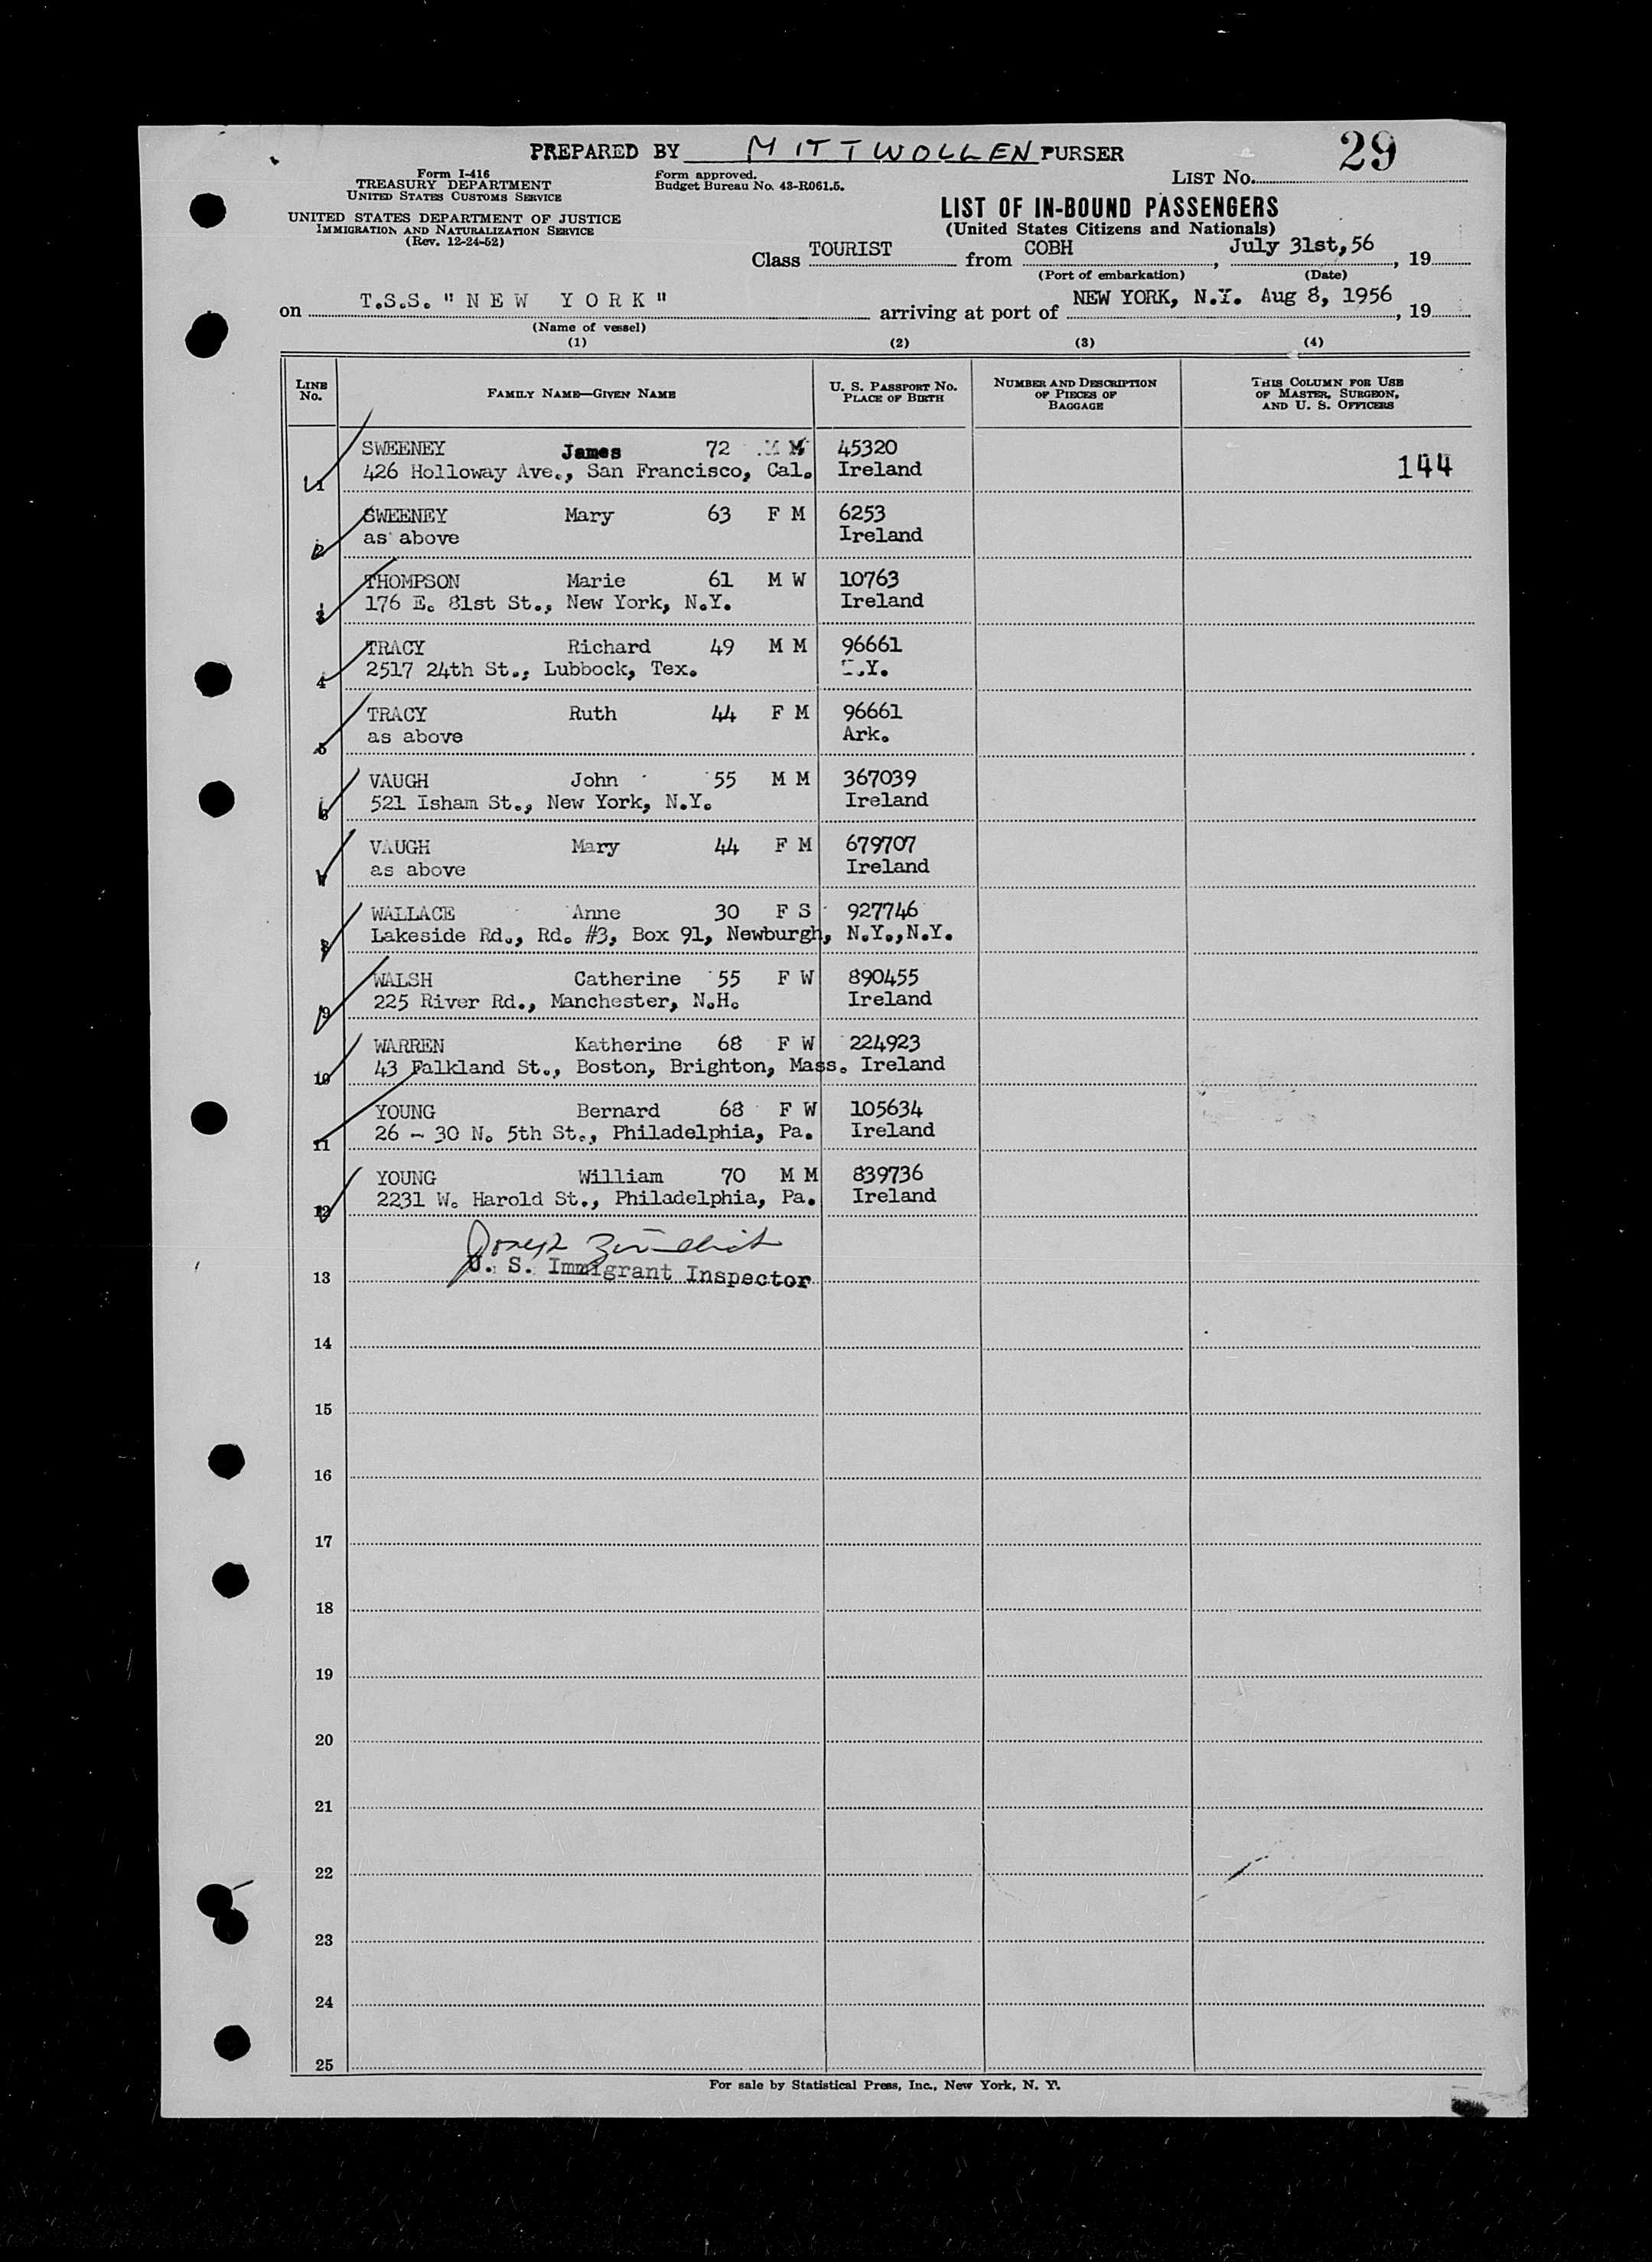 PREPARED BY MITTWOLLEN PURSER
29
Form I-416
TREASURY DEPARTMENT
UNITED STATES CUSTOMS SERVICE
Form approved.
Budget Bureau No. 43-R061.5.
LIST No.
UNITED STATES DEPARTMENT OF JUSTICE
IMMIGRATION AND NATURALIZATION SERVICE
(Rev. 12-24-52)
LIST OF IN-BOUND PASSENGERS
(United States Citizens and Nationals)
Class TOURIST from COBH, July 31st, 56, 19
(Port of embarkation) (Date)
on T.S.S. "NEW YORK" arriving at port of NEW YORK, N.Y. Aug 8, 1956, 19
(Name of vessel)
(1) (2) (3) (4)
LINE No. FAMILY NAME—GIVEN NAME U. S. PASSPORT NO. PLACE OF BIRTH NUMBER AND DESCRIPTION OF PIECES OF BAGGAGE THIS COLUMN FOR USE OF MASTER, SURGEON, AND U. S. OFFICERS
SWEENEY James 72 M M 45320
1 426 Holloway Ave., San Francisco, Cal. Ireland 144
SWEENEY Mary 63 F M 6253
2 as above Ireland
THOMPSON Marie 61 M W 10763
3 176 E. 81st St., New York, N.Y. Ireland
TRACY Richard 49 M M 96661
4 2517 24th St., Lubbock, Tex. .Y.
TRACY Ruth 44 F M 96661
5 as above Ark.
VAUGH John 55 M M 367039
6 521 Isham St., New York, N.Y. Ireland
VAUGH Mary 44 F M 679707
7 as above Ireland
WALLACE Anne 30 F S 927746
8 Lakeside Rd., Rd. #3, Box 91, Newburgh, N.Y.,N.Y.
WALSH Catherine 55 F W 890455
9 225 River Rd., Manchester, N.H. Ireland
WARREN Katherine 68 F W 224923
10 43 Falkland St., Boston, Brighton, Mass. Ireland
YOUNG Bernard 68 F W 105634
11 26 - 30 N. 5th St., Philadelphia, Pa. Ireland
YOUNG William 70 M M 839736
12 2231 W. Harold St., Philadelphia, Pa. Ireland
Joseph
13 U. S. Immigrant Inspector
14
15
16
17
18
19
20
21
22
23
24
25
For sale by Statistical Press, Inc., New York, N. Y.